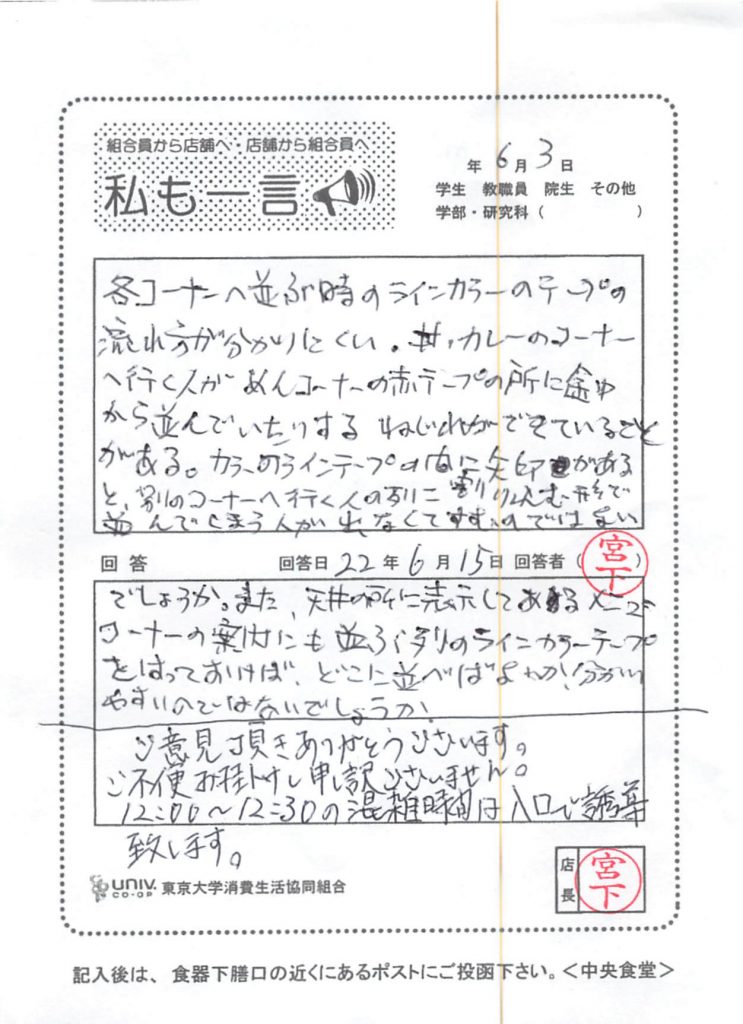 組合員から店舗へ・店舗から組合員へ
私も一言
年 6月 3日
学生 教職員 院生 その他
学部・研究科（ ）
各コーナーへ並ぶ時のラインカラーのテープの
流れ方が分かりにくい。丼,カレーのコーナー
へ行く人がめんコーナーの赤テープの所に途中
から並んでいたりする ねじれができていること
がある。カラーのラインテープの内に矢印がある
と、別のコーナーへ行く人の列に割り込む形で
並んでしまう人が出なくてすむのではない
回答 回答日 22年 6月 15日 回答者（宮下）
でしょうか。また、天井の所に表示してあるメニュー
コーナーの案内にも並ぶ列のラインカラーテープ
をはっておけば、どこに並べばよいか分かり
やすいのではないでしょうか
ご意見頂きありがとうございます。
ご不便お掛けし申し訳ございません。
12:00～12:30の混雑時間は入口で誘導
致します。
UNIV. CO-OP 東京大学消費生活協同組合
店長 宮下
記入後は、食器下膳口の近くにあるポストにご投函下さい。＜中央食堂＞